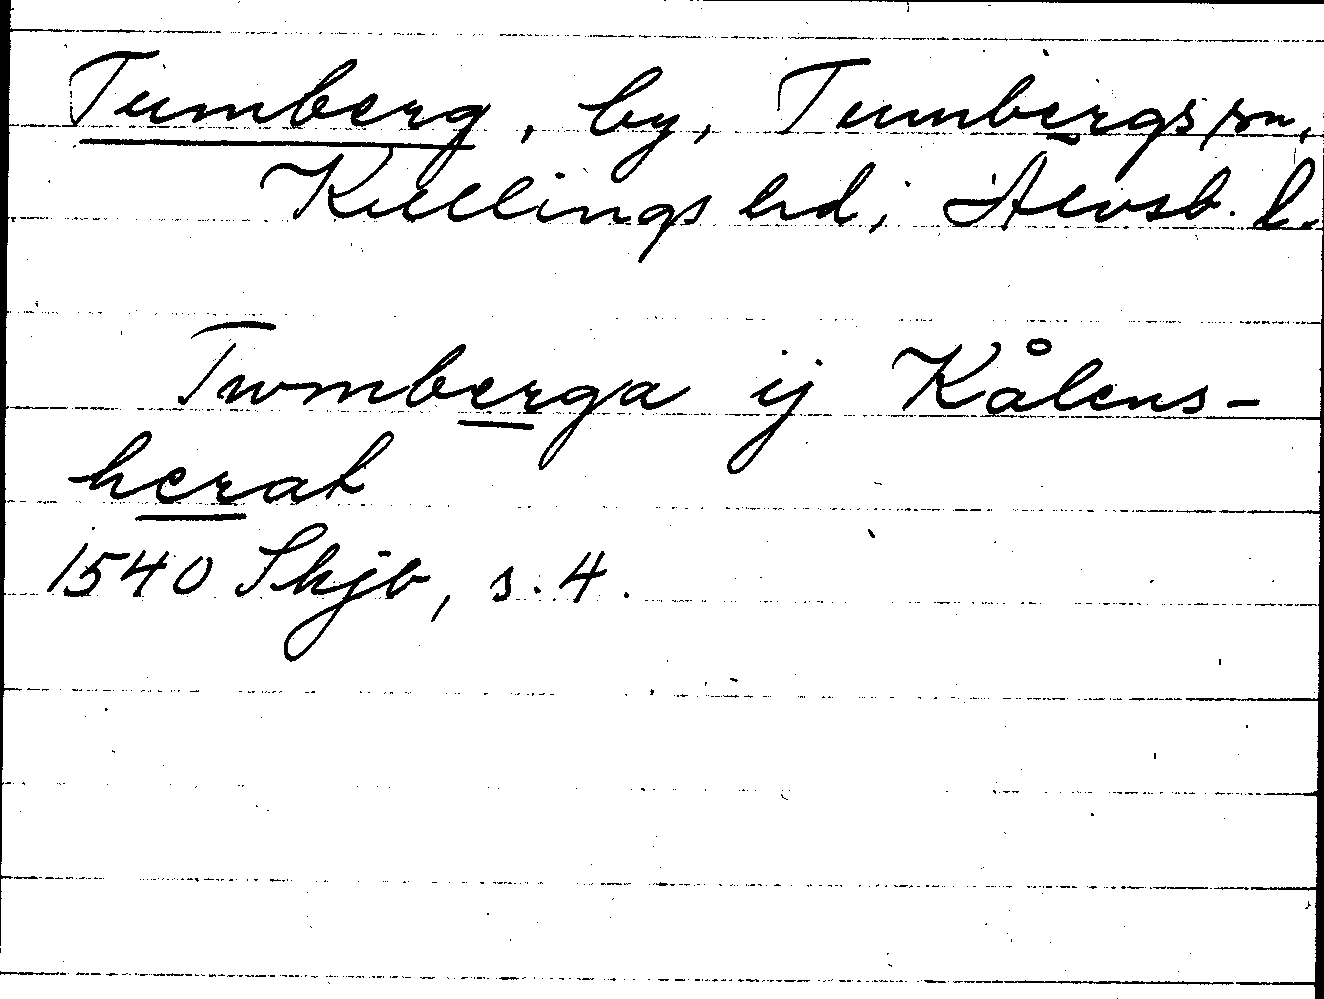 Tumberg, by, Tumbergs sn,
Kullings hd, Älvsb. l.
Twmberga ij Kålens-
herat
1540 Skjb, s. 4.